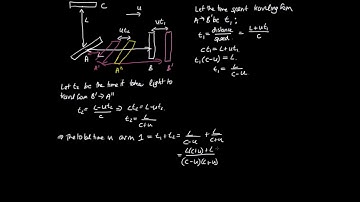 C
L
u
ut₂
ut₁
A
A'
A''
B
B'
Let the time spent travelling from
A→B' be t₁:
t₁ = distance/speed = L+ut₁/C
ct₁ = L+ut₁
t₁(c-u) = L
t₁ = L/c-u
Let t₂ be the time it takes light to
travel from B'→A''
t₂ = L-ut₂/C ⇒ ct₂ = L-ut₂
t₂ = L/c+u
⇒ The total time in arm 1 = t₁+t₂ = L/c-u + L/c+u
= L(c+u)+L/(c-u)(c+u)